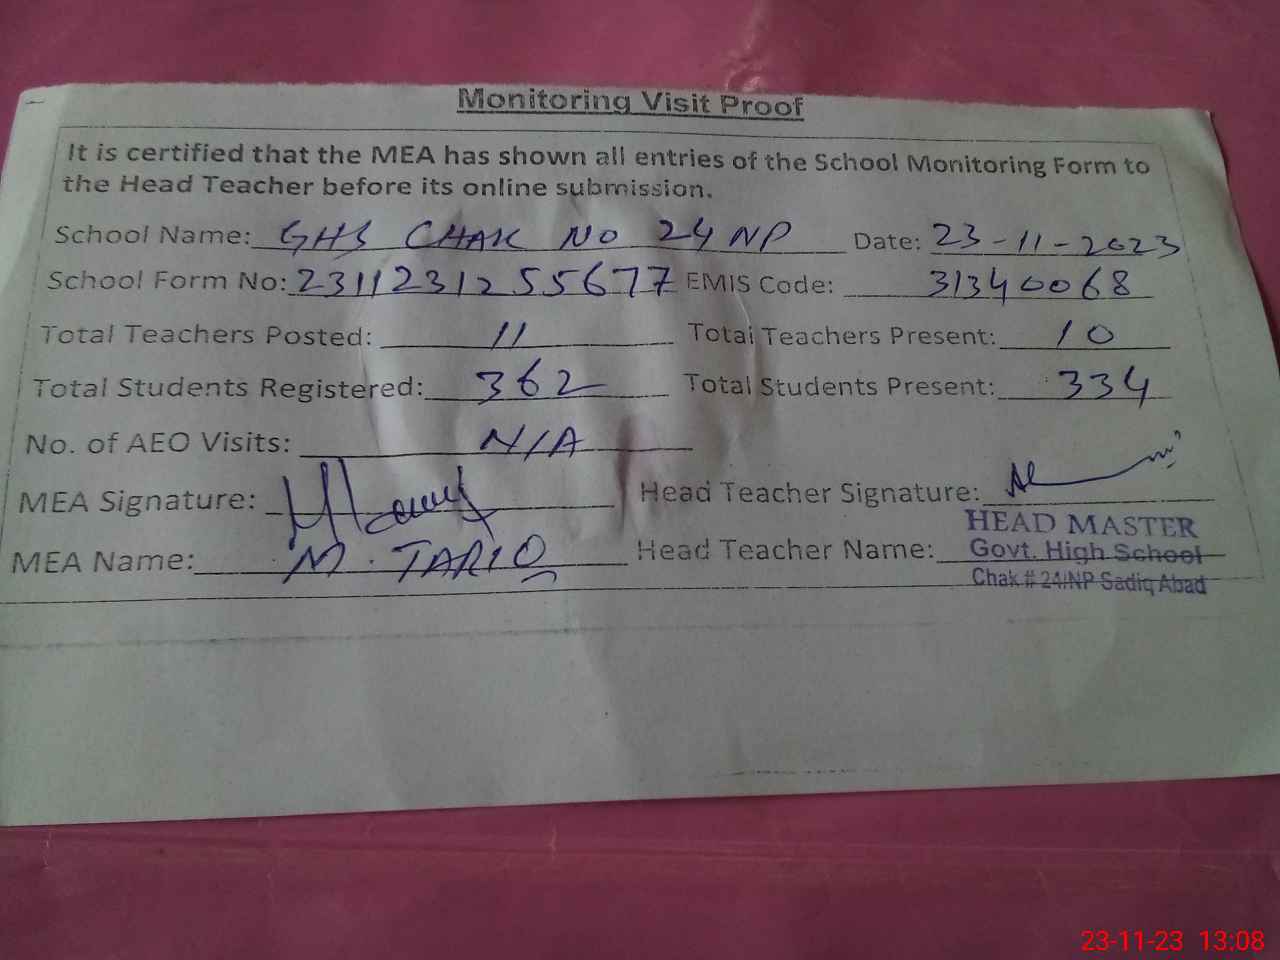 Monitoring Visit Proof
It is certified that the MEA has shown all entries of the School Monitoring Form to
the Head Teacher before its online submission.
School Name: GHS CHAK NO 24 NP Date: 23-11-2023
School Form No: 231123125 5677 EMIS Code: 31340068
Total Teachers Posted: 11 Total Teachers Present: 10
Total Students Registered: 362 Total Students Present: 334
No. of AEO Visits: N/A
MEA Signature: Head Teacher Signature:
HEAD MASTER
MEA Name: M. TARIQ Head Teacher Name: Govt. High School
Chak # 24/NP Sadiq Abad
23-11-23 13:08